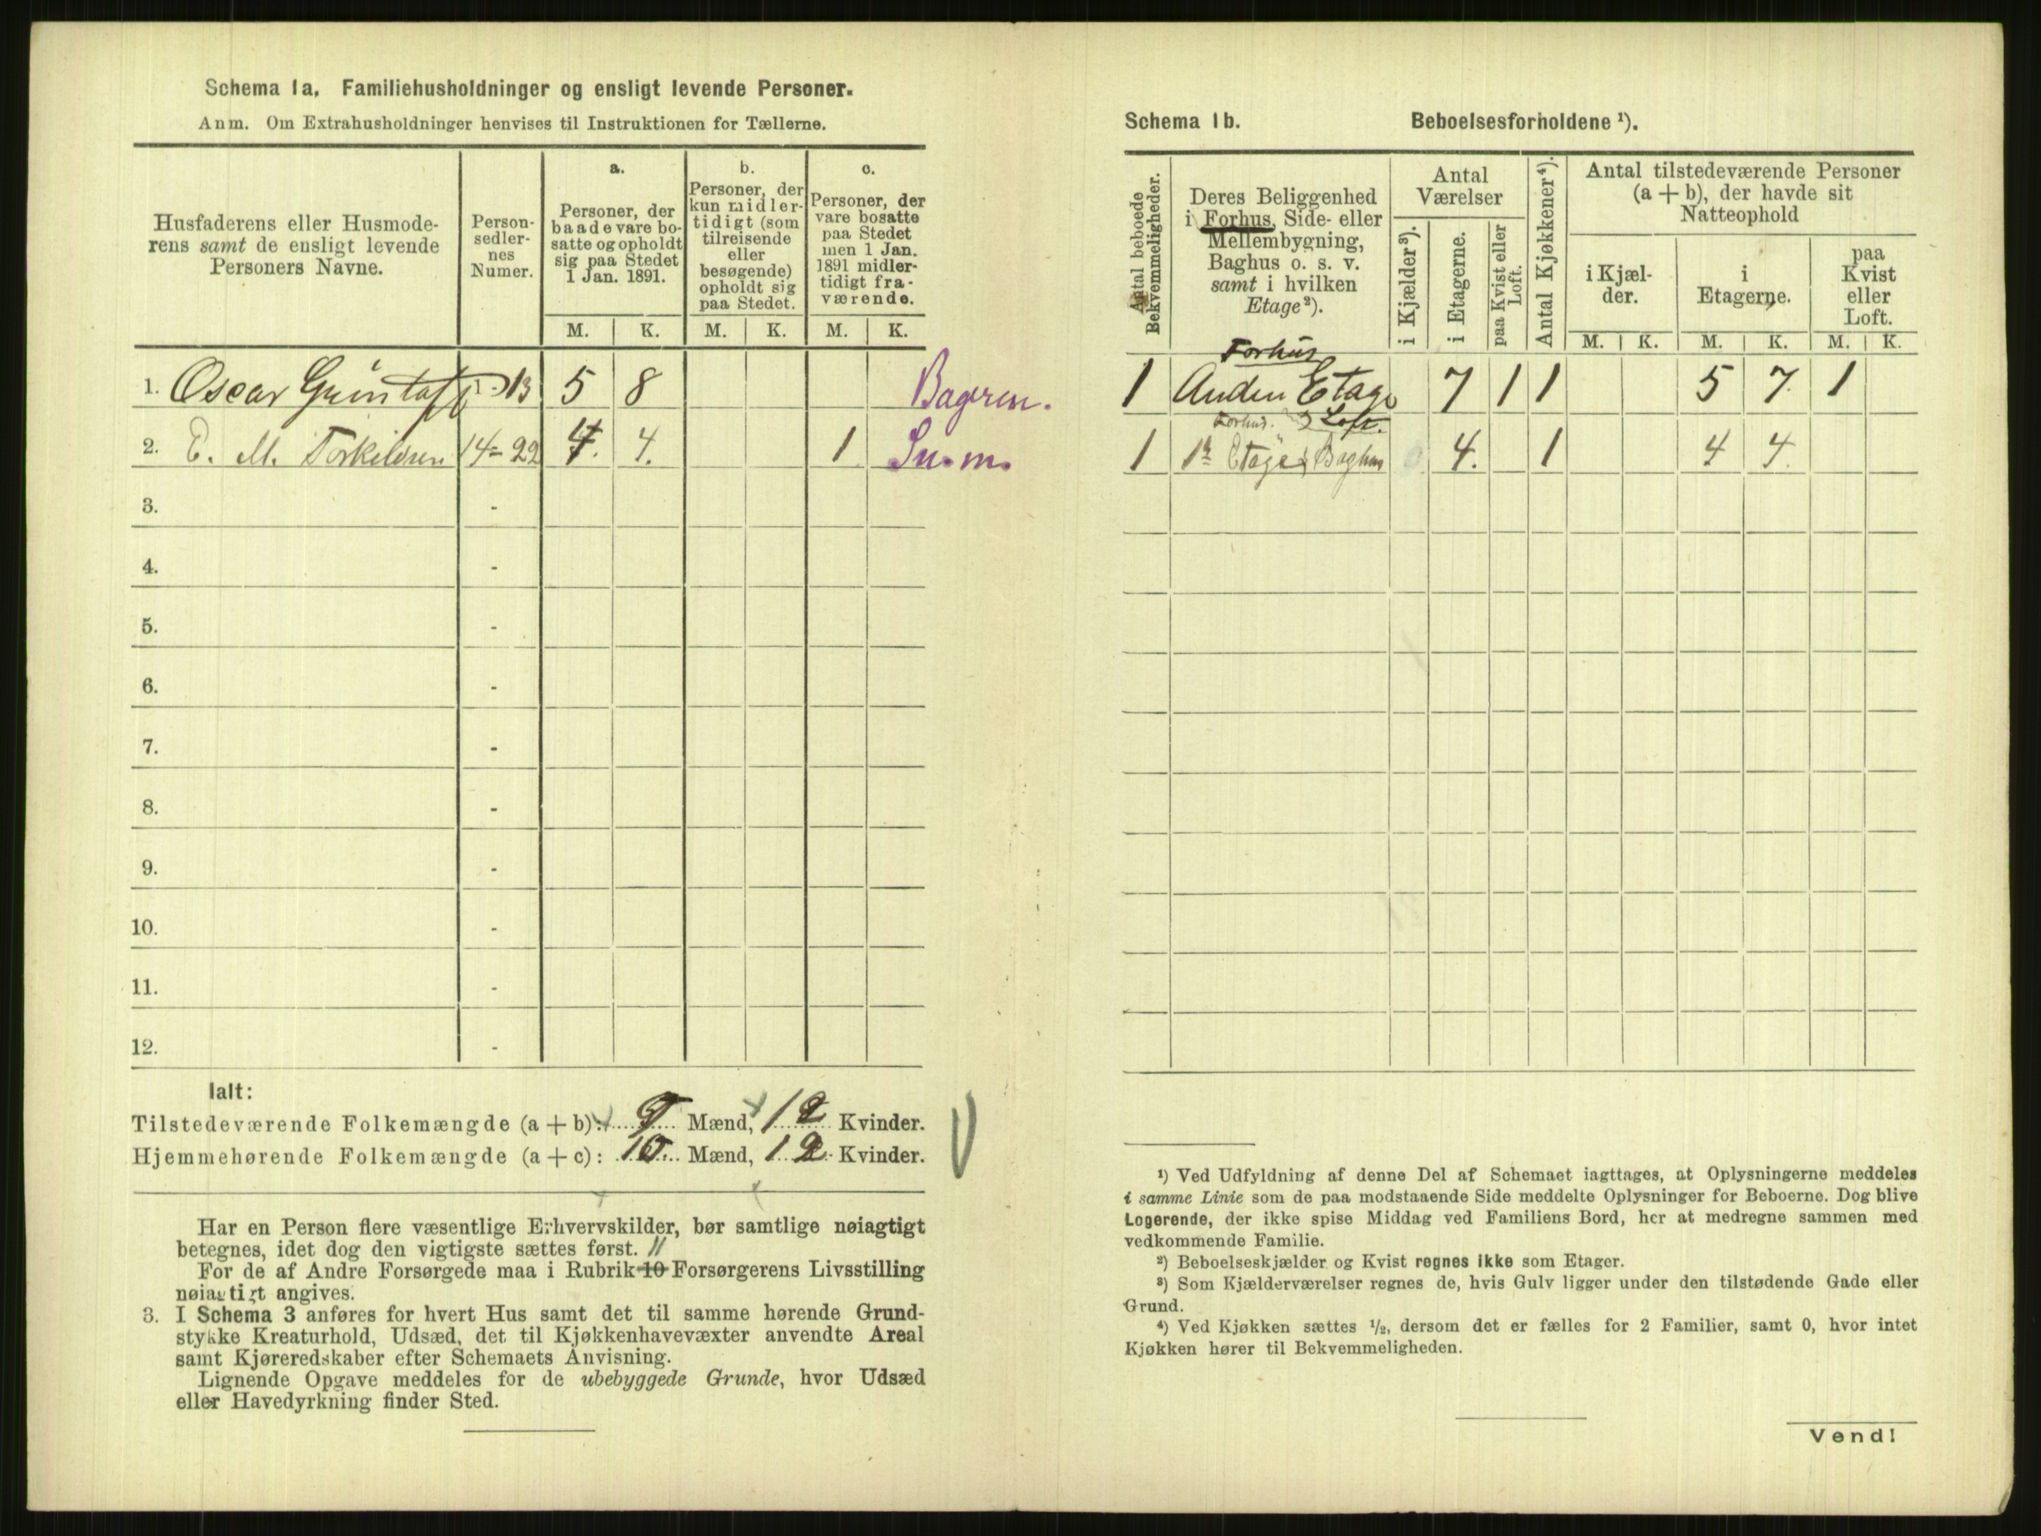 Schema 1a. Familiehusholdninger og ensligt levende Personer.
Anm. Om Extrahusholdninger henvises til Instruktionen for Tællerne.
Husfaderens eller Husmode-
rens samt de ensligt levende
Personers Navne.
Person-
sedler-
nes
Numer.
a.
Personer, der
baade vare bo-
satte og opholdt
sig paa Stedet
1 Jan. 1891.
b.
Personer, der
kun midler-
tidigt (som
tilreisende
eller
besøgende)
opholdt sig
paa Stedet.
c.
Personer, der
vare bosatte
paa Stedet
men 1 Jan.
1891 midler-
tidigt fra-
værende.
M. K. M. K. M. K.
1. Oscar 1-13 5 8
2. E. M. Torkildsen 14-22 4. 4. 1
3. -
4. -
5. -
6. -
7. -
8. -
9. -
10. -
11. -
12. -
Ialt:
Tilstedeværende Folkemængde (a + b): 9 Mænd, 12 Kvinder.
Hjemmehørende Folkemængde (a + c): 10 Mænd, 12 Kvinder.
Har en Person flere væsentlige Erhvervskilder, bør samtlige nøiagtigt
betegnes, idet dog den vigtigste sættes først. 11
For de af Andre Forsørgede maa i Rubrik 10 Forsørgerens Livsstilling
nøiagtigt angives.
3. I Schema 3 anføres for hvert Hus samt det til samme hørende Grund-
stykke Kreaturhold, Udsæd, det til Kjøkkenhavevæxter anvendte Areal
samt Kjøreredskaber efter Schemaets Anvisning.
Lignende Opgave meddeles for de ubebyggede Grunde, hvor Udsæd
eller Havedyrkning finder Sted.
Schema 1b. Beboelsesforholdene ¹).
Antal beboede
Bekvemmeligheder.
Deres Beliggenhed
i Forhus, Side- eller
Mellembygning,
Baghus o. s. v.
samt i hvilken
Etage²).
Antal
Værelser
i Kjælder³).
i Etagerne.
paa Kvist eller
Loft.
Antal Kjøkkener⁴).
Antal tilstedeværende Personer
(a + b), der havde sit
Natteophold
i Kjæl-
der.
i
Etagerne.
paa
Kvist
eller
Loft.
M. K. M. K. M. K.
Forhus
1 Anden Etage 7 1 1 5 7. 1
Forhus. Loft.
1 Etage Baghus 4. 1 4 4.
¹) Ved Udfyldning af denne Del af Schemaet iagttages, at Oplysningerne meddeles
i samme Linie som de paa modstaaende Side meddelte Oplysninger for Beboerne. Dog blive
Logerende, der ikke spise Middag ved Familiens Bord, her at medregne sammen med
vedkommende Familie.
²) Beboelseskjælder og Kvist regnes ikke som Etager.
³) Som Kjælderværelser regnes de, hvis Gulv ligger under den tilstødende Gade eller
Grund.
⁴) Ved Kjøkken sættes ½, dersom det er fælles for 2 Familier, samt 0, hvor intet
Kjøkken hører til Bekvemmeligheden.
Vend!